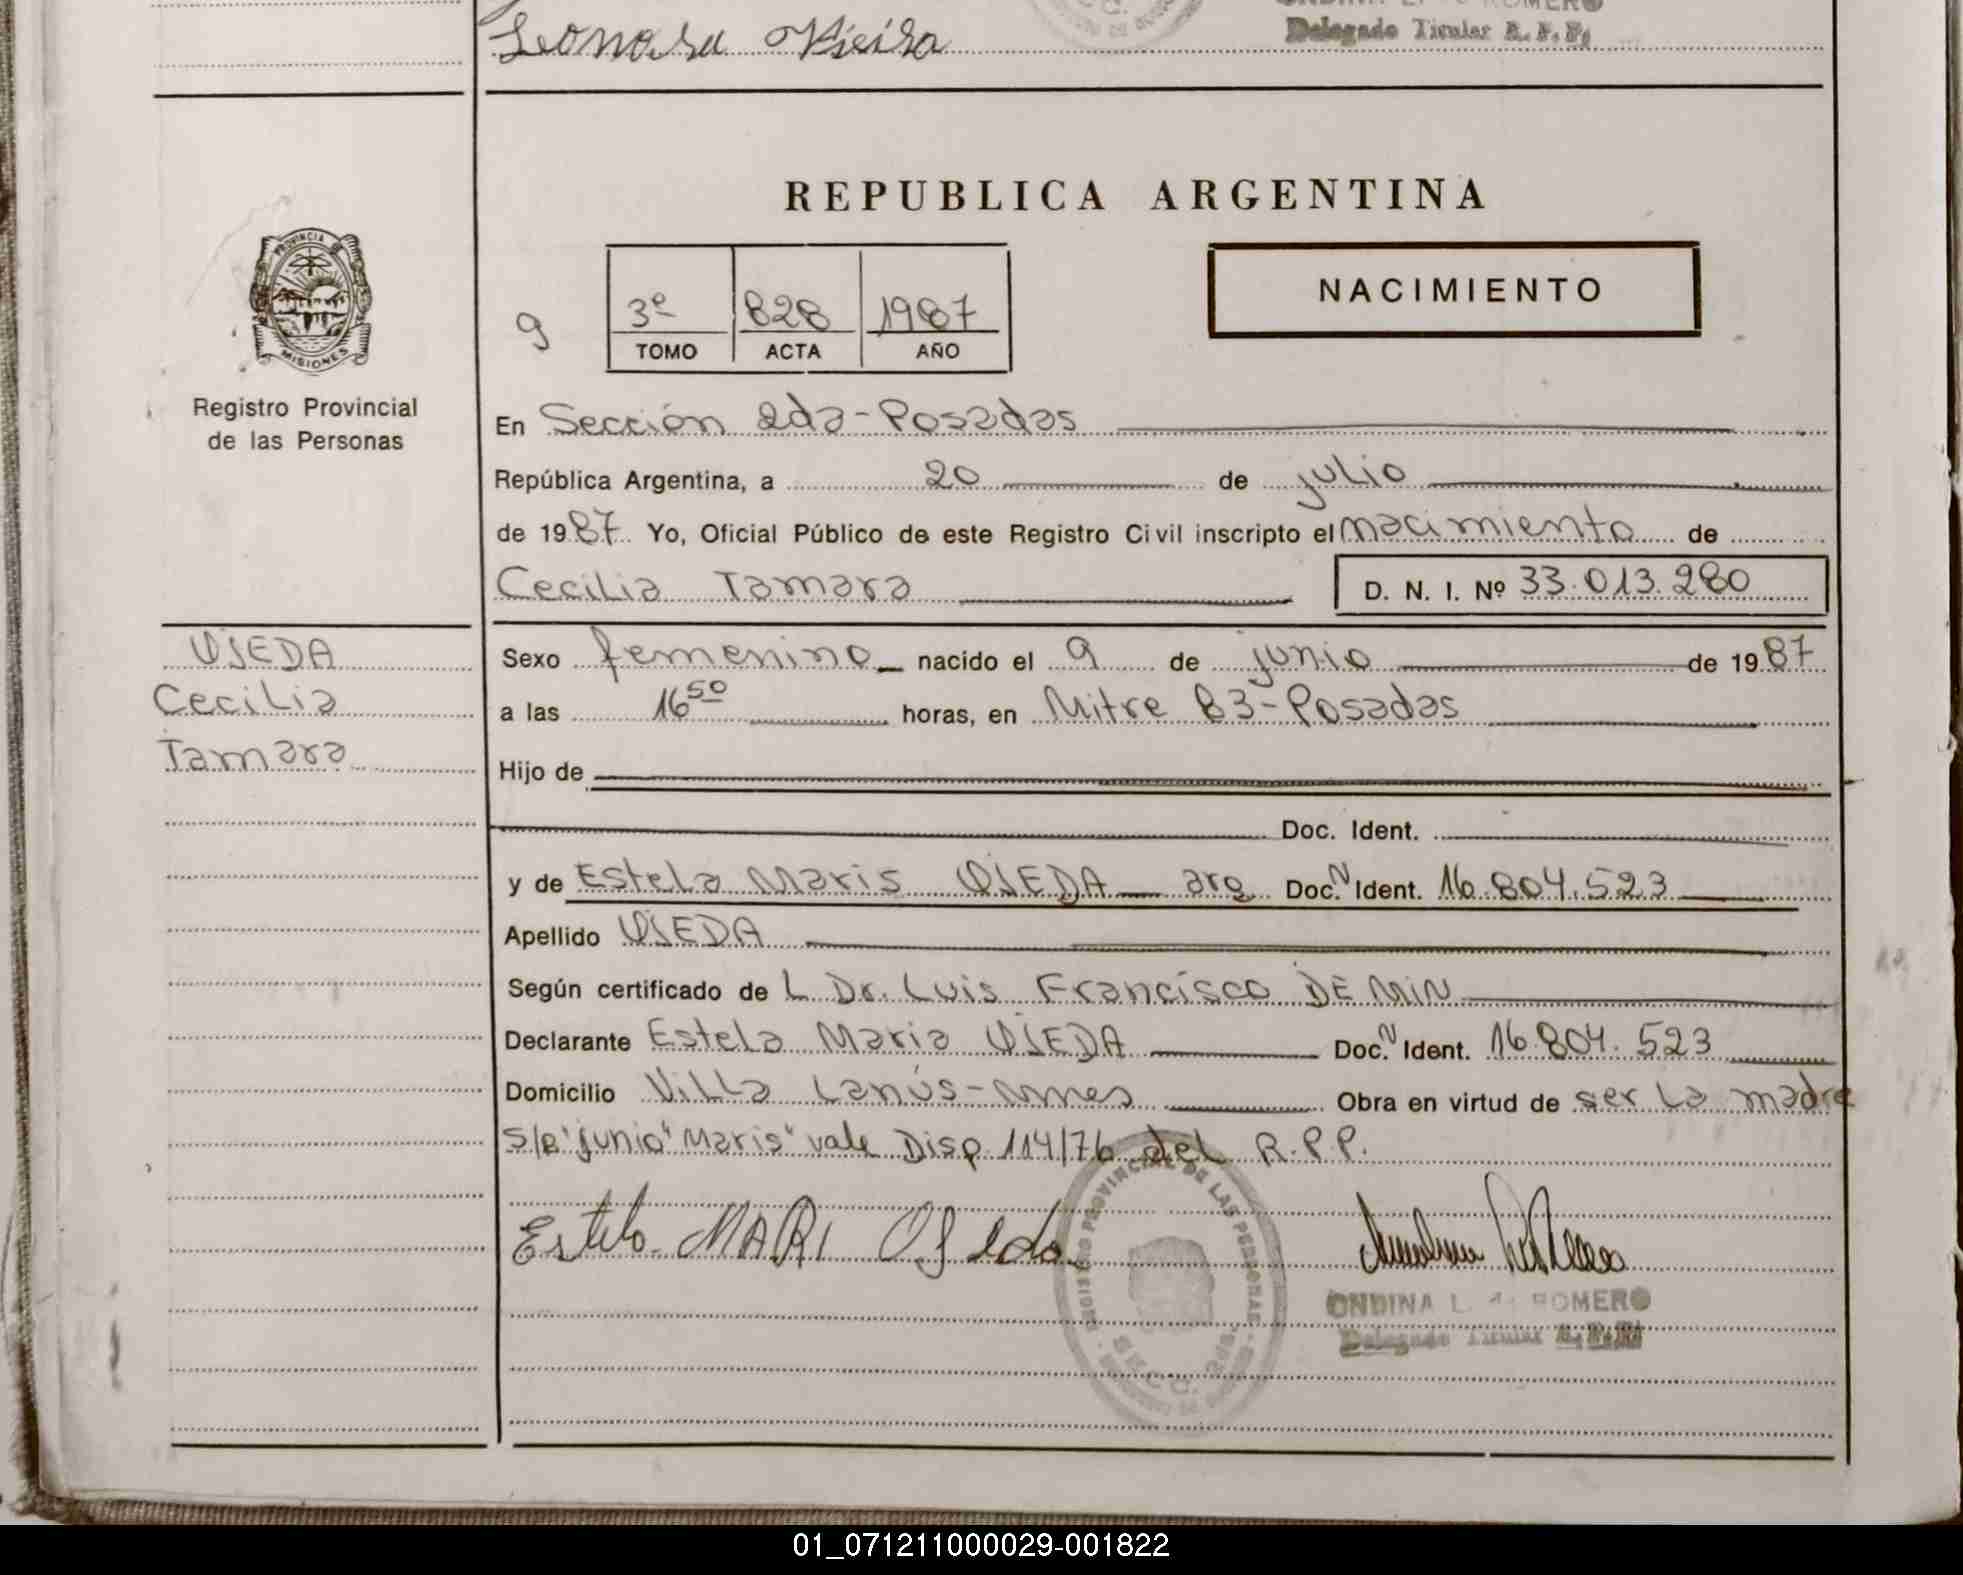 Leonora Vieira
Delegado Titular R. P. P.
REPUBLICA ARGENTINA
PROVINCIA DE
MISIONES
NACIMIENTO
9
3º 828 1987
TOMO ACTA AÑO
Registro Provincial
de las Personas
En Sección 2da-Posadas
República Argentina, a 20 de julio
de 1987 Yo, Oficial Público de este Registro Civil inscripto el nacimiento de
Cecilia Tamara D. N. I. Nº 33.013.280
OJEDA
Cecilia
Tamara
Sexo femenino nacido el 9 de junio de 1987
a las 16 50 horas, en Mitre 83-Posadas
Hijo de
Doc. Ident.
y de Estela Maris OJEDA arg Doc. N Ident. 16.804.523
Apellido OJEDA
Según certificado de L Dr. Luis Francisco DE MIN
Declarante Estela Maria OJEDA Doc. N Ident. 16.804.523
Domicilio Villa Lanús-Mnes Obra en virtud de ser la madre
S/B "junio" "Maris" vale Disp. 114/76 del R.P.P.
Estela MARI Ojeda
REGISTRO PROVINCIAL DE LAS PERSONAS
SECC. 2da.
ONDINA L. de ROMERO
Delegado Titular R. P. P.
01_071211000029-001822